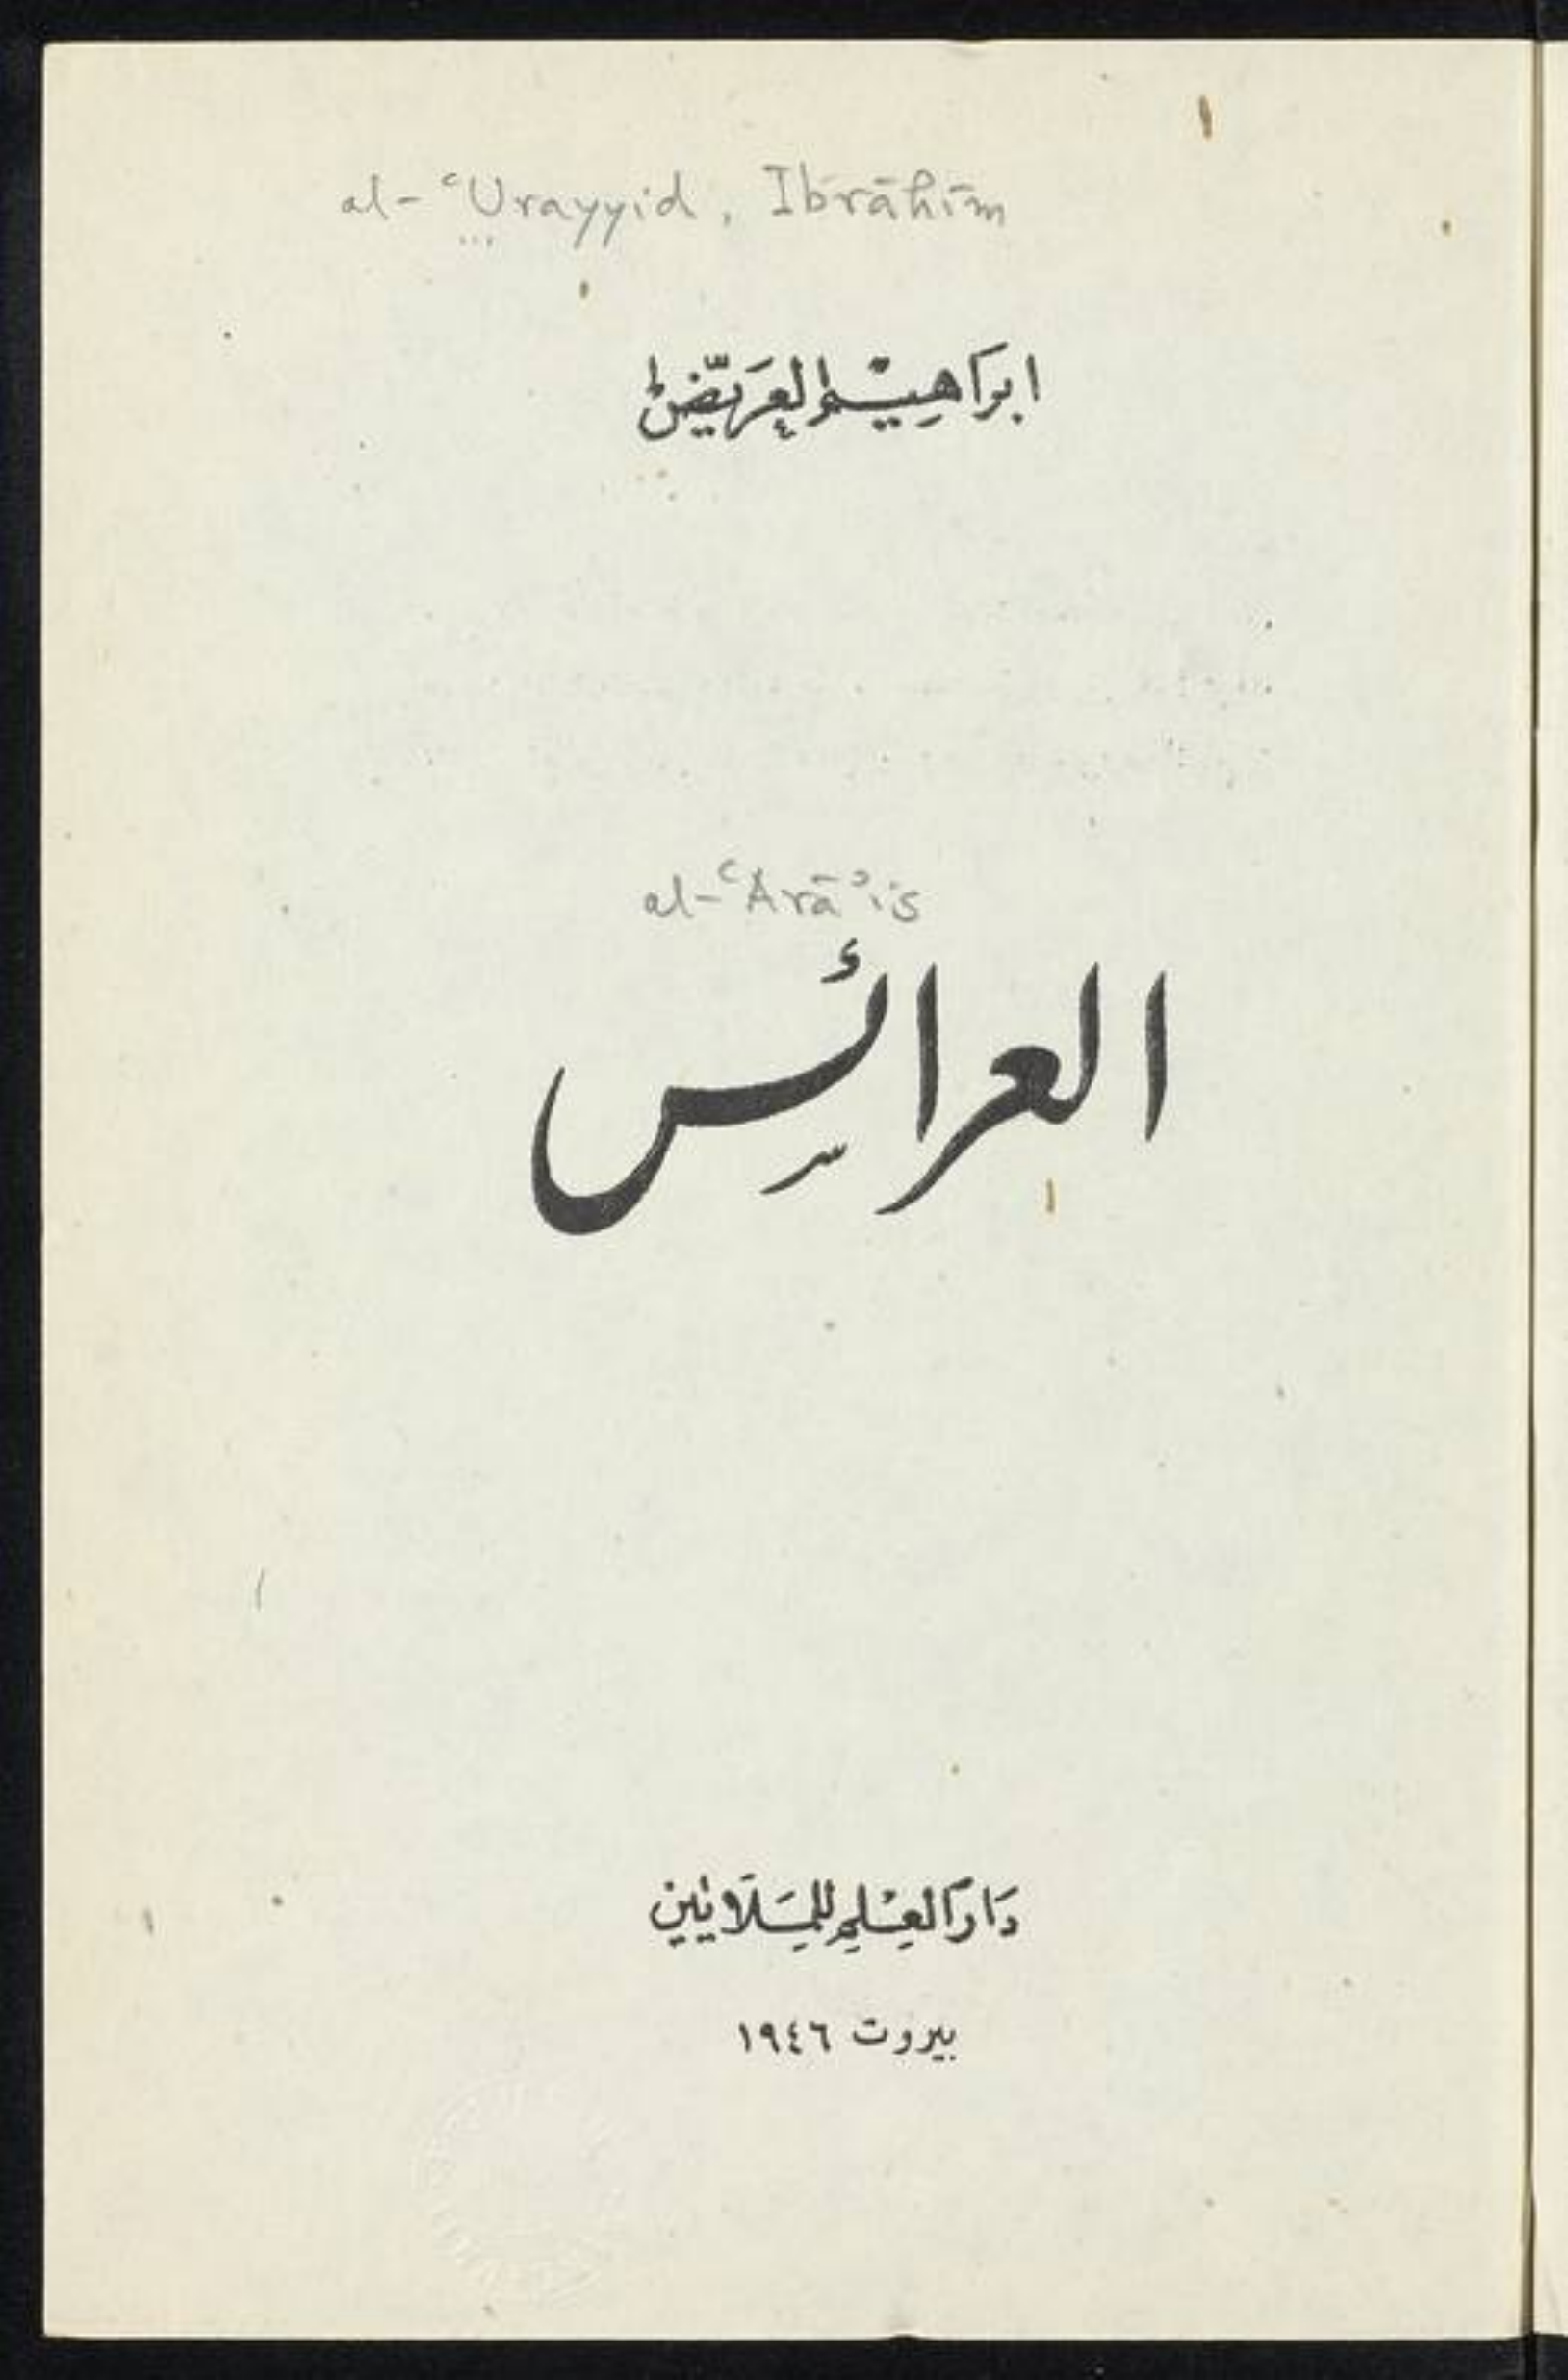 al-ʿUrayyid, Ibrāhīm
ابراهيم العريّض
al-ʿArāʾis
العرائس
دار العلم للملايين
بيروت ١٩٤٦